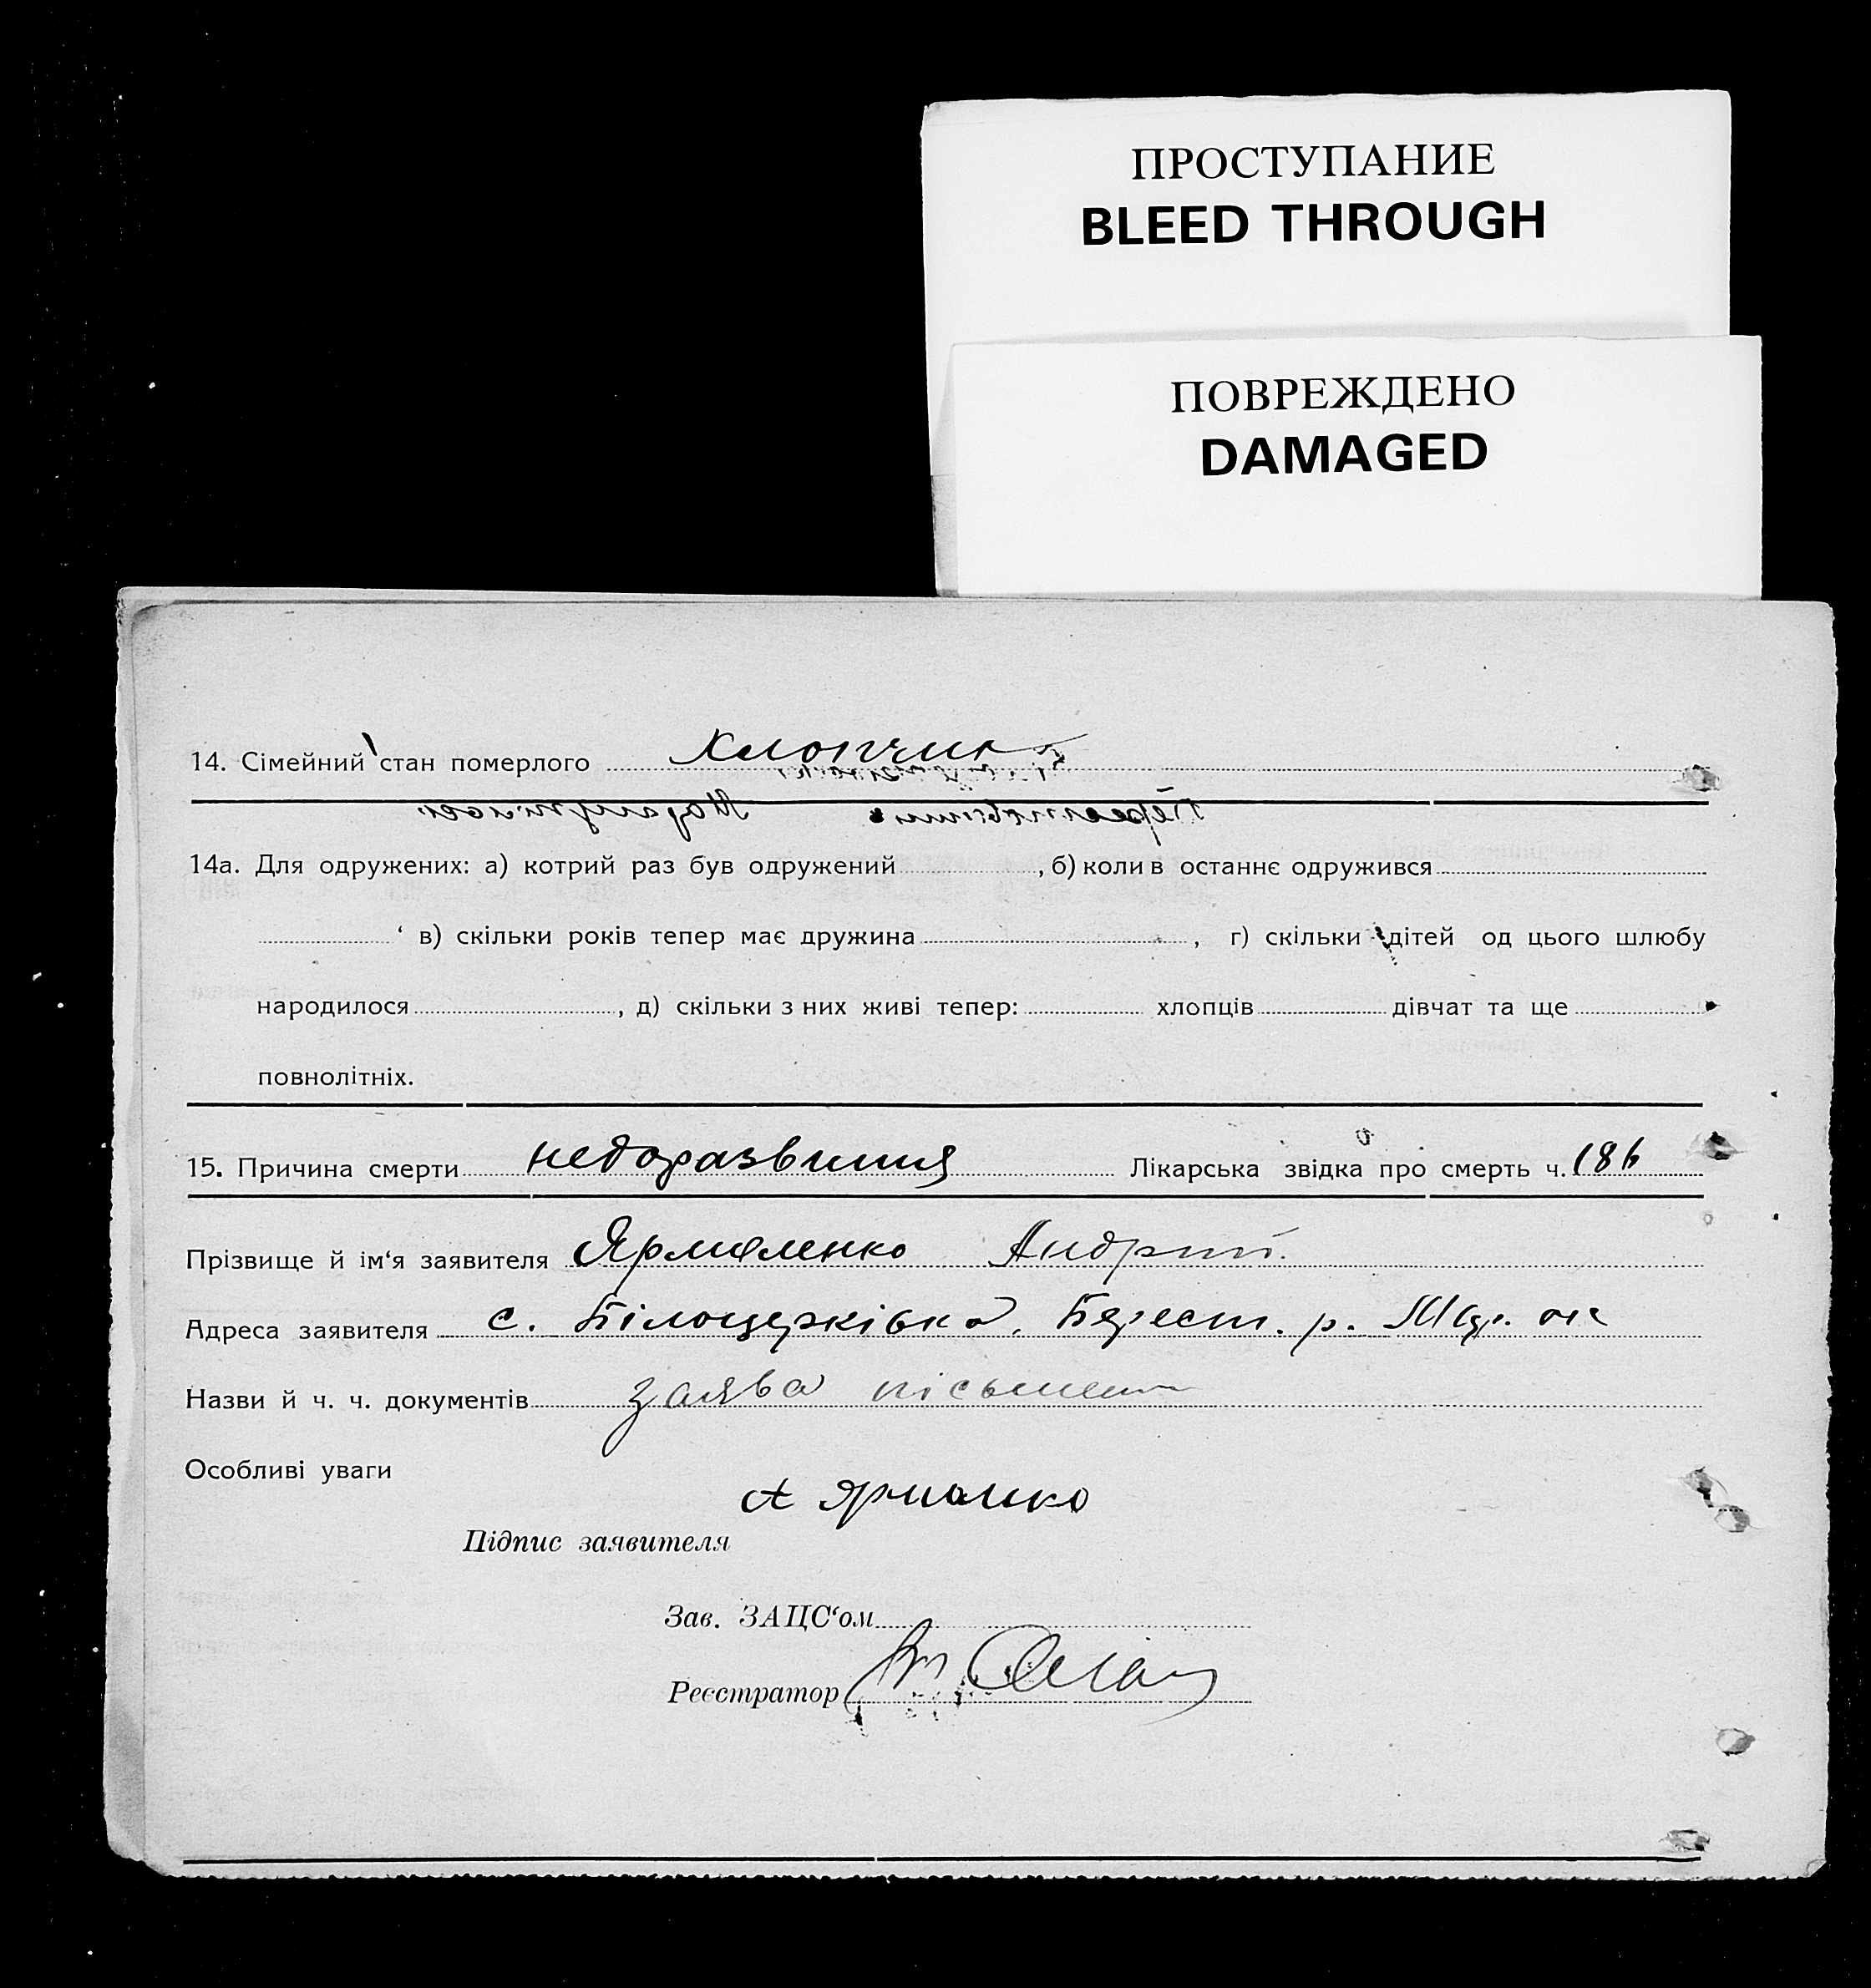 ПРОСТУПАНИЕ
BLEED THROUGH
ПОВРЕЖДЕНО
DAMAGED
14. Сімейний стан померлого хлопчик
14а. Для одружених: а) котрий раз був одружений , б) коли в останнє одружився
‘ в) скільки років тепер має дружина , г) скільки дітей од цього шлюбу
народилося , д) скільки з них живі тепер: хлопців дівчат та ще
повнолітніх.
15. Причина смерти недоразвития Лікарська звідка про смерть ч. 186
Прізвище й ім‘я заявителя Андрий.
Адреса заявителя с. Білоцерківка, Берест. р. ок
Назви й ч. ч. документів заява
Особливі уваги
Підпис заявителя А
Зав. ЗАЦС‘ом
Реєстратор